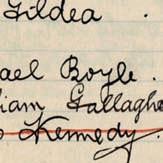 Gildea
ael Boyle.
iam Gallaghe
Kennedy.